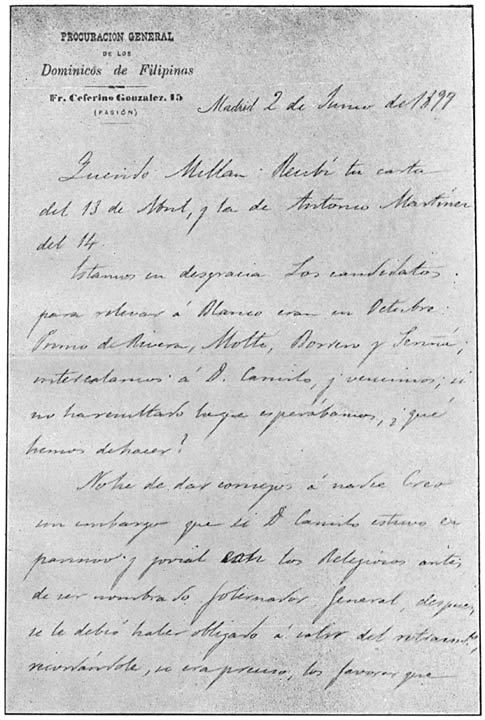 PROCURACION GENERAL
DE LOS
Dominicos de Filipinas
Fr. Ceferino Gonzalez, 15
(PASIÓN)
Madrid 2 de Junio de 1897
Querido Millan: Recibí tu carta
del 13 de Abril, y la de Antonio Martínez
del 14.
Estamos en desgracia. Los candidatos
para relevar á Blanco eran en Octubre:
Primo de Rivera, Molto, Borrero y
intercalamos á D. Camilo, y vencimos; si
no ha resultado lo que esperábamos, ¿qué
hemos de hacer?
No he de dar consejos á nadie Creo
sin embargo que si D Camilo estuvo
y jovial con los Religiosos antes
de ser nombrado Gobernador General, despues
se le debió haber obligado á salir del
recordándole, si era preciso, los favores que